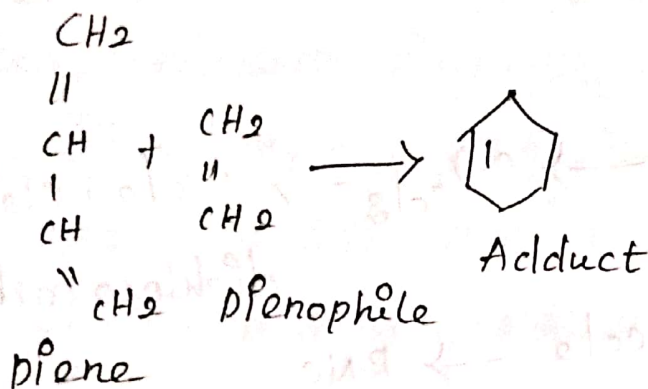 CH2
||
CH + CH2
| ||
CH CH2
|| CH2 Dienophile Adduct
Diene